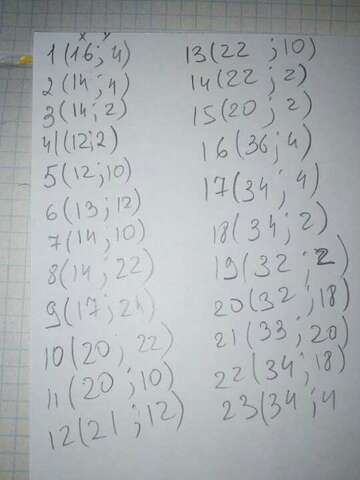 x y
1(16; 4)
2(14; 4)
3(14; 2)
4(12; 2)
5(12; 10)
6(13; 12)
7(14; 10)
8(14; 22)
9(17; 24)
10(20; 22)
11(20; 10)
12(21; 12)
13(22 ; 10)
14(22 ; 2)
15(20 ; 2)
16(36; 4)
17(34; 4)
18(34; 2)
19(32; 2)
20(32; 18)
21(33; 20)
22(34; 18)
23(34; 4